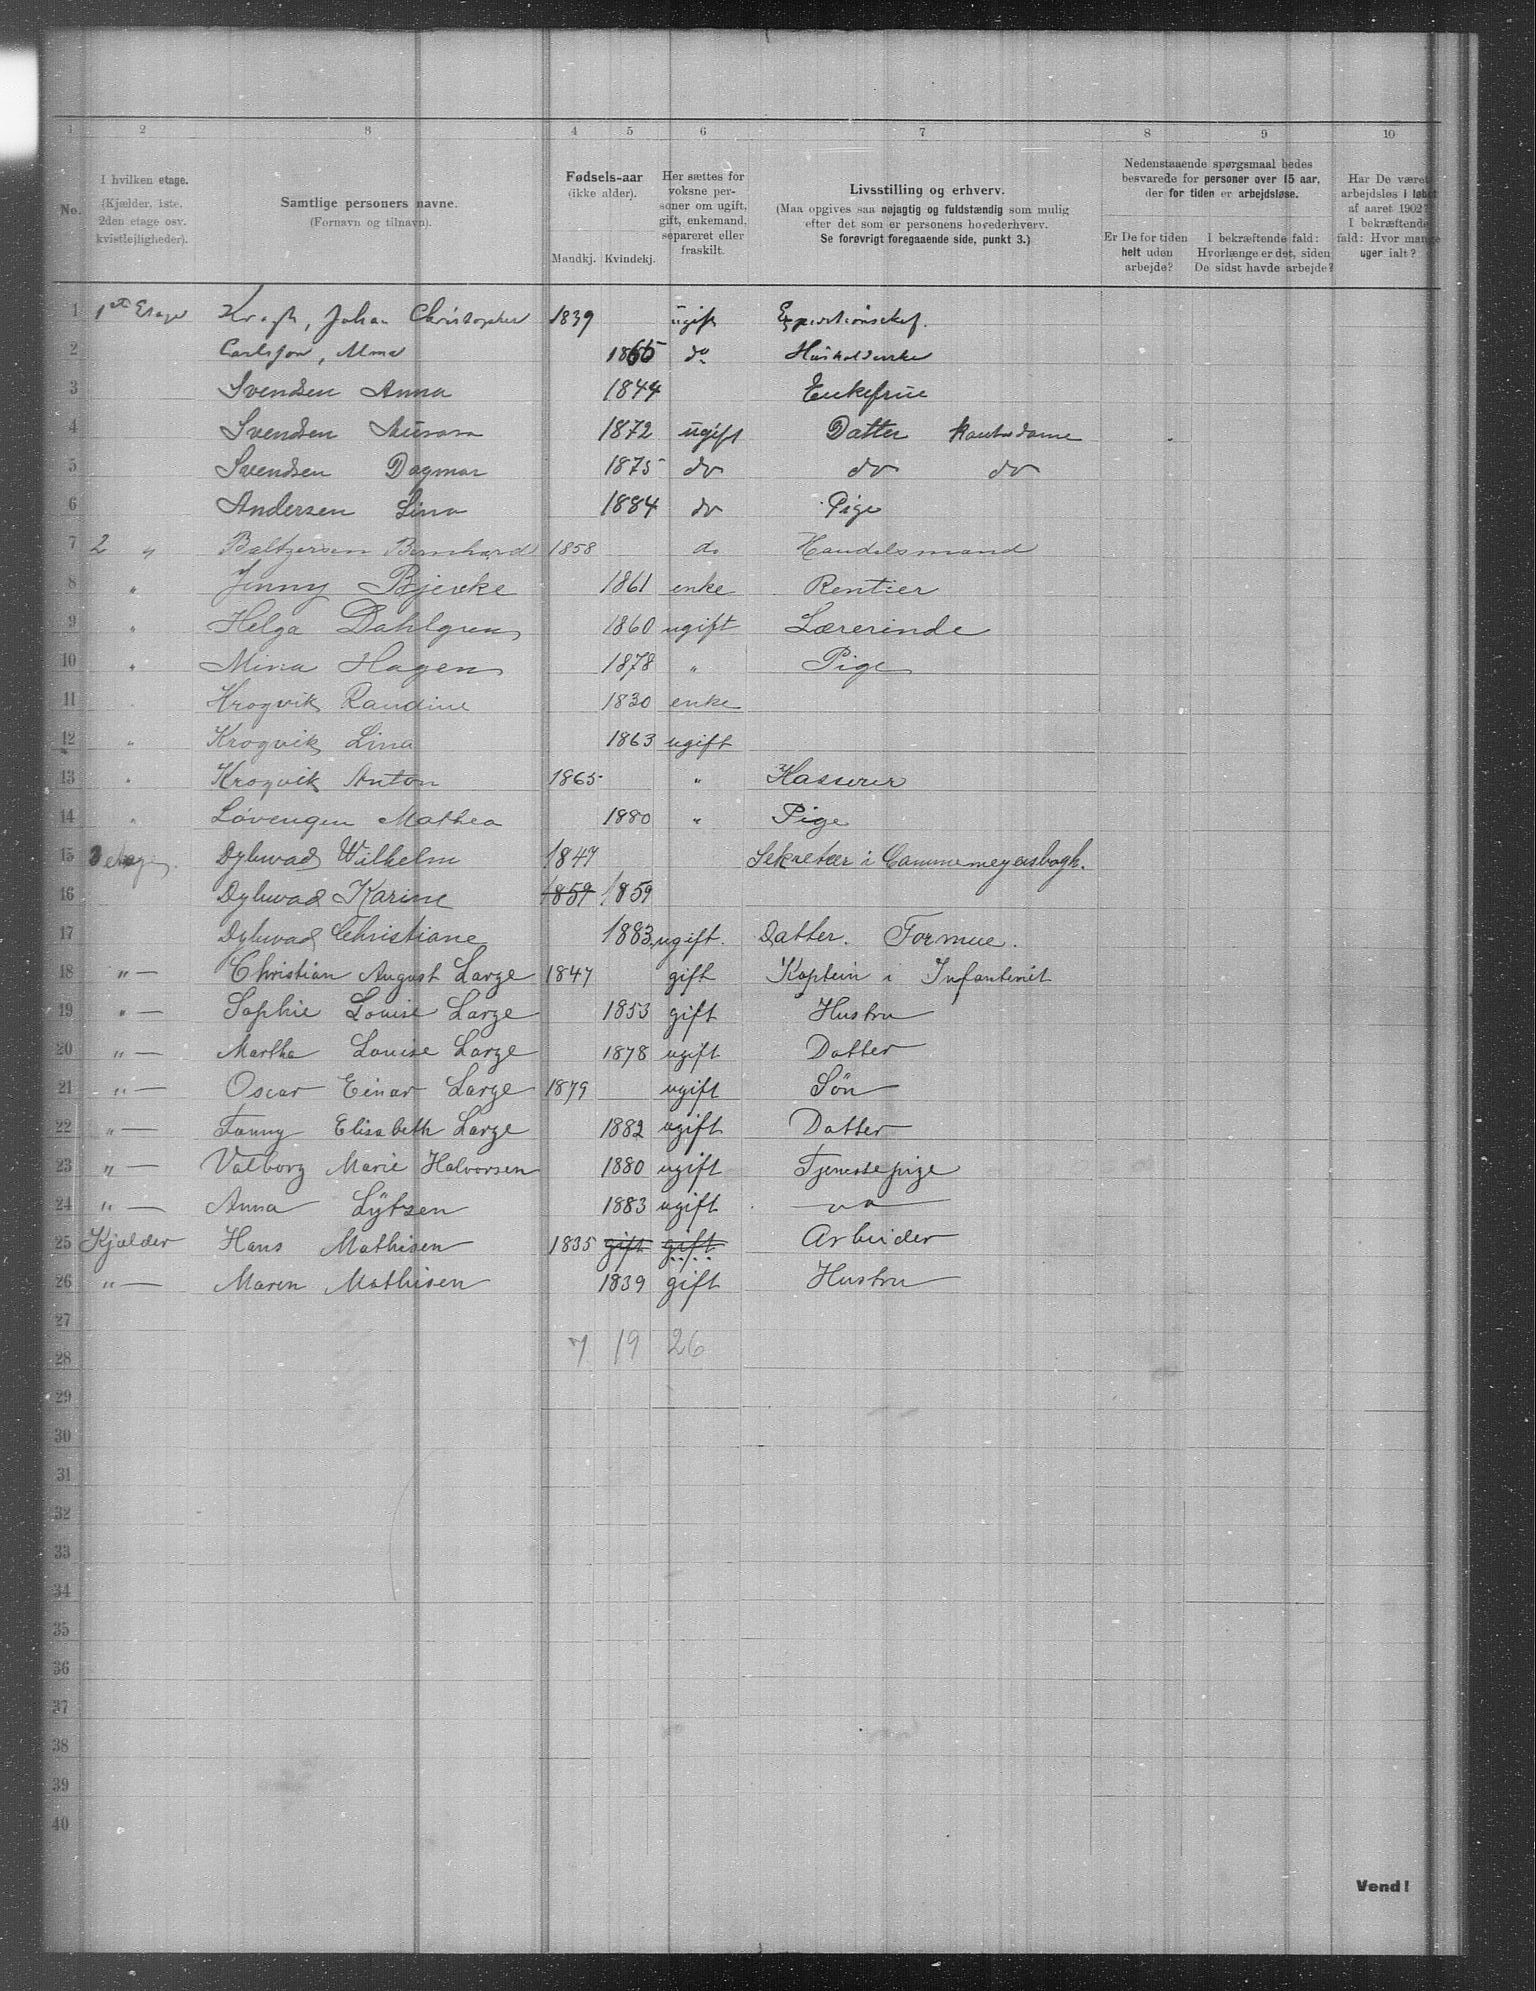 1 2 3 4 5 6 7 8 9 10
No.
I hvilken etage.
(Kjælder, 1ste,
2den etage osv.
kvistlejligheder).
Samtlige personers navne.
(Fornavn og tilnavn).
Fødsels-aar
(ikke alder).
Mandkj. Kvindekj.
Her sættes for
voksne per-
soner om ugift,
gift, enkemand,
separeret eller
fraskilt.
Livsstilling og erhverv.
(Maa opgives saa nøjagtig og fuldstændig som mulig
efter det som er personens hovederhverv.
Se forøvrigt foregaaende side, punkt 3.)
Nedenstaaende spørgsmaal bedes
besvarede for personer over 15 aar,
der for tiden er arbejdsløse.
Er De for tiden
helt uden
arbejde?
I bekræftende fald:
Hvorlænge er det, siden
De sidst havde arbejde?
Har De været
arbejdsløs i løbet
af aaret 1902?
I bekræftende
fald: Hvor mange
uger ialt?
1 1ste Etage Kragh, Johan Christopher 1839 ugift Expeditionschef.
2 Carlsson, Alma 1865 do
3 Svendsen Anna 1844 Enkefrue
4 Svendsen Aurora 1872 ugift Datter Kontordame
5 Svendsen Dagmar 1875 do do do
6 Andersen Lina 1884 do Pige
7 2 " Baltzersen Bernhard 1858 do Handelsmand
8 " Jenny Bjercke 1861 enke Rentier
9 " Helga Dahlgren 1860 ugift Lærerinde
10 " Mina Hagen 1878 " Pige
11 Krogvik Randine 1830 enke
12 " Krogvik Lina 1863 ugift
13 " Krogvik Anton 1865 " Kasserer
14 " Løvengen Mathea 1880 " Pige
15 3 etage. Dybwad Wilhelm 1847 Sekretær i Cammemeyersbogh.
16 Dybwad Karine 1859 1859
17 Dybwad Christiane 1883 ugift. Datter. Formue.
18 " — Christian August Lange 1847 gift Kaptein i Infanteriet
19 " — Sophie Louise Lange 1853 gift Hustru
20 " — Martha Louise Lange 1878 ugift Datter
21 " — Oscar Einar Lange 1879 ugift Søn
22 " — Fanny Elisabeth Lange 1882 ugift Datter
23 " — Valborg Marie Halvorsen 1880 ugift Tjenestepige
24 " — Anna Lÿtzen 1883 ugift — " —
25 Kjælder Hans Mathisen 1835 gift gift Arbeider
26 " — Maren Mathisen 1839 gift Hustru
27
7 19 26
28
29
30
31
32
33
34
35
36
37
38
39
40
Vend!